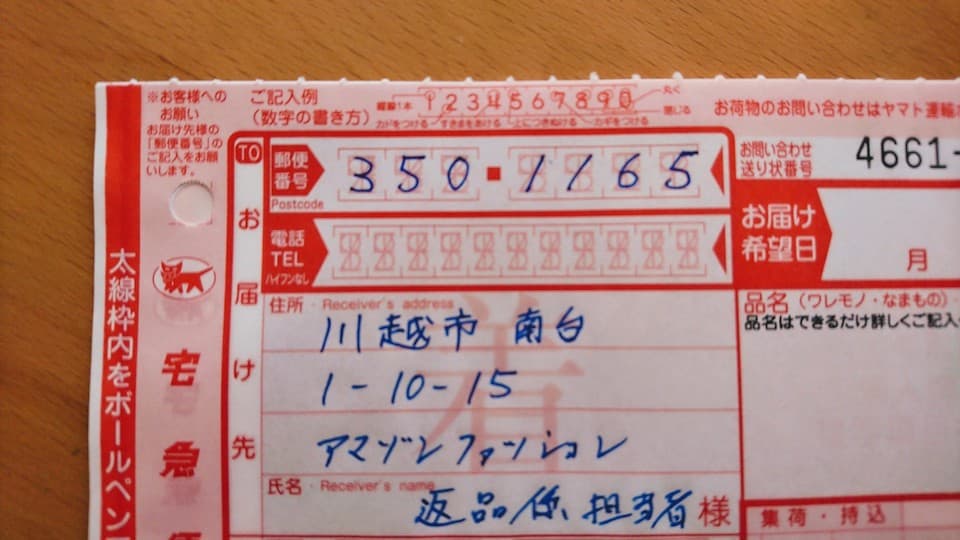 ※お客様への
お願い
お届け先様の
「郵便番号」の
ご記入をお願
いします。
ご記入例
(数字の書き方)
縦線1本 1234567890 丸く
カドをつける すきまをあける 上につきぬける カギをつける 閉じる
お荷物のお問い合わせはヤマト運輸
太線枠内をボールペン
宅急便
TO
お届け先
郵便番号
Postcode
350-1165
電話
TEL
ハイフンなし
住所・Receiver's address
川越市 南台
1-10-15
アマゾンファッション
氏名・Receiver's name
返品係 担当者 様
着
お問い合わせ
送り状番号
4661-
お届け
希望日
月
品名(ワレモノ・なまもの)
品名はできるだけ詳しくご記入
集荷・持込